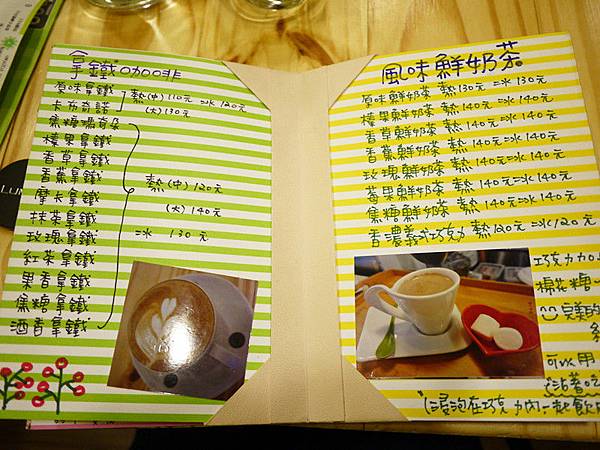 拿鐵咖啡
原味拿鐵 熱(中)110元 冰120元
卡布奇諾 (大)130元
焦糖瑪奇朵
榛果拿鐵
香草拿鐵
香蕉拿鐵 熱(中)120元
摩卡拿鐵 (大)140元
抹茶拿鐵
玫瑰拿鐵 冰 130元
紅茶拿鐵
果香拿鐵
焦糖拿鐵
酒香拿鐵
風味鮮奶茶
原味鮮奶茶 熱130元 冰130元
榛果鮮奶茶 熱140元 冰140元
香草鮮奶茶 熱140元 冰140元
香蕉鮮奶茶 熱140元 冰140元
玫瑰鮮奶茶 熱140元 冰140元
莓果鮮奶茶 熱140元 冰140元
焦糖鮮奶茶 熱140元 冰140元
香濃義式巧克力 熱120元 冰120元
巧克力加
棉花糖
完美的
可以用
沾著吃
浸泡在巧克力內一起飲